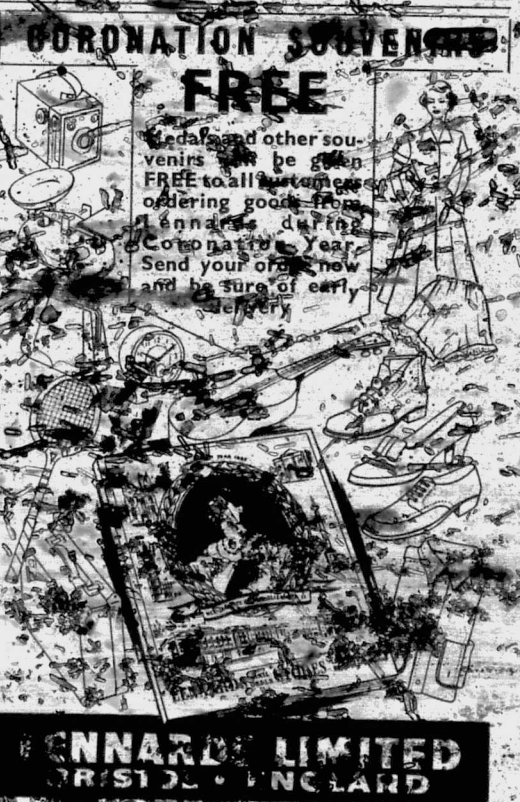 CORONATION SOUVENIRS
FREE
Medals and other sou-
venirs will be given
FREE to all customers
ordering goods from
Lennards during
Coronation Year.
Send your order now
and be sure of early
delivery
LENNARDS LIMITED
BRISTOL • ENGLAND